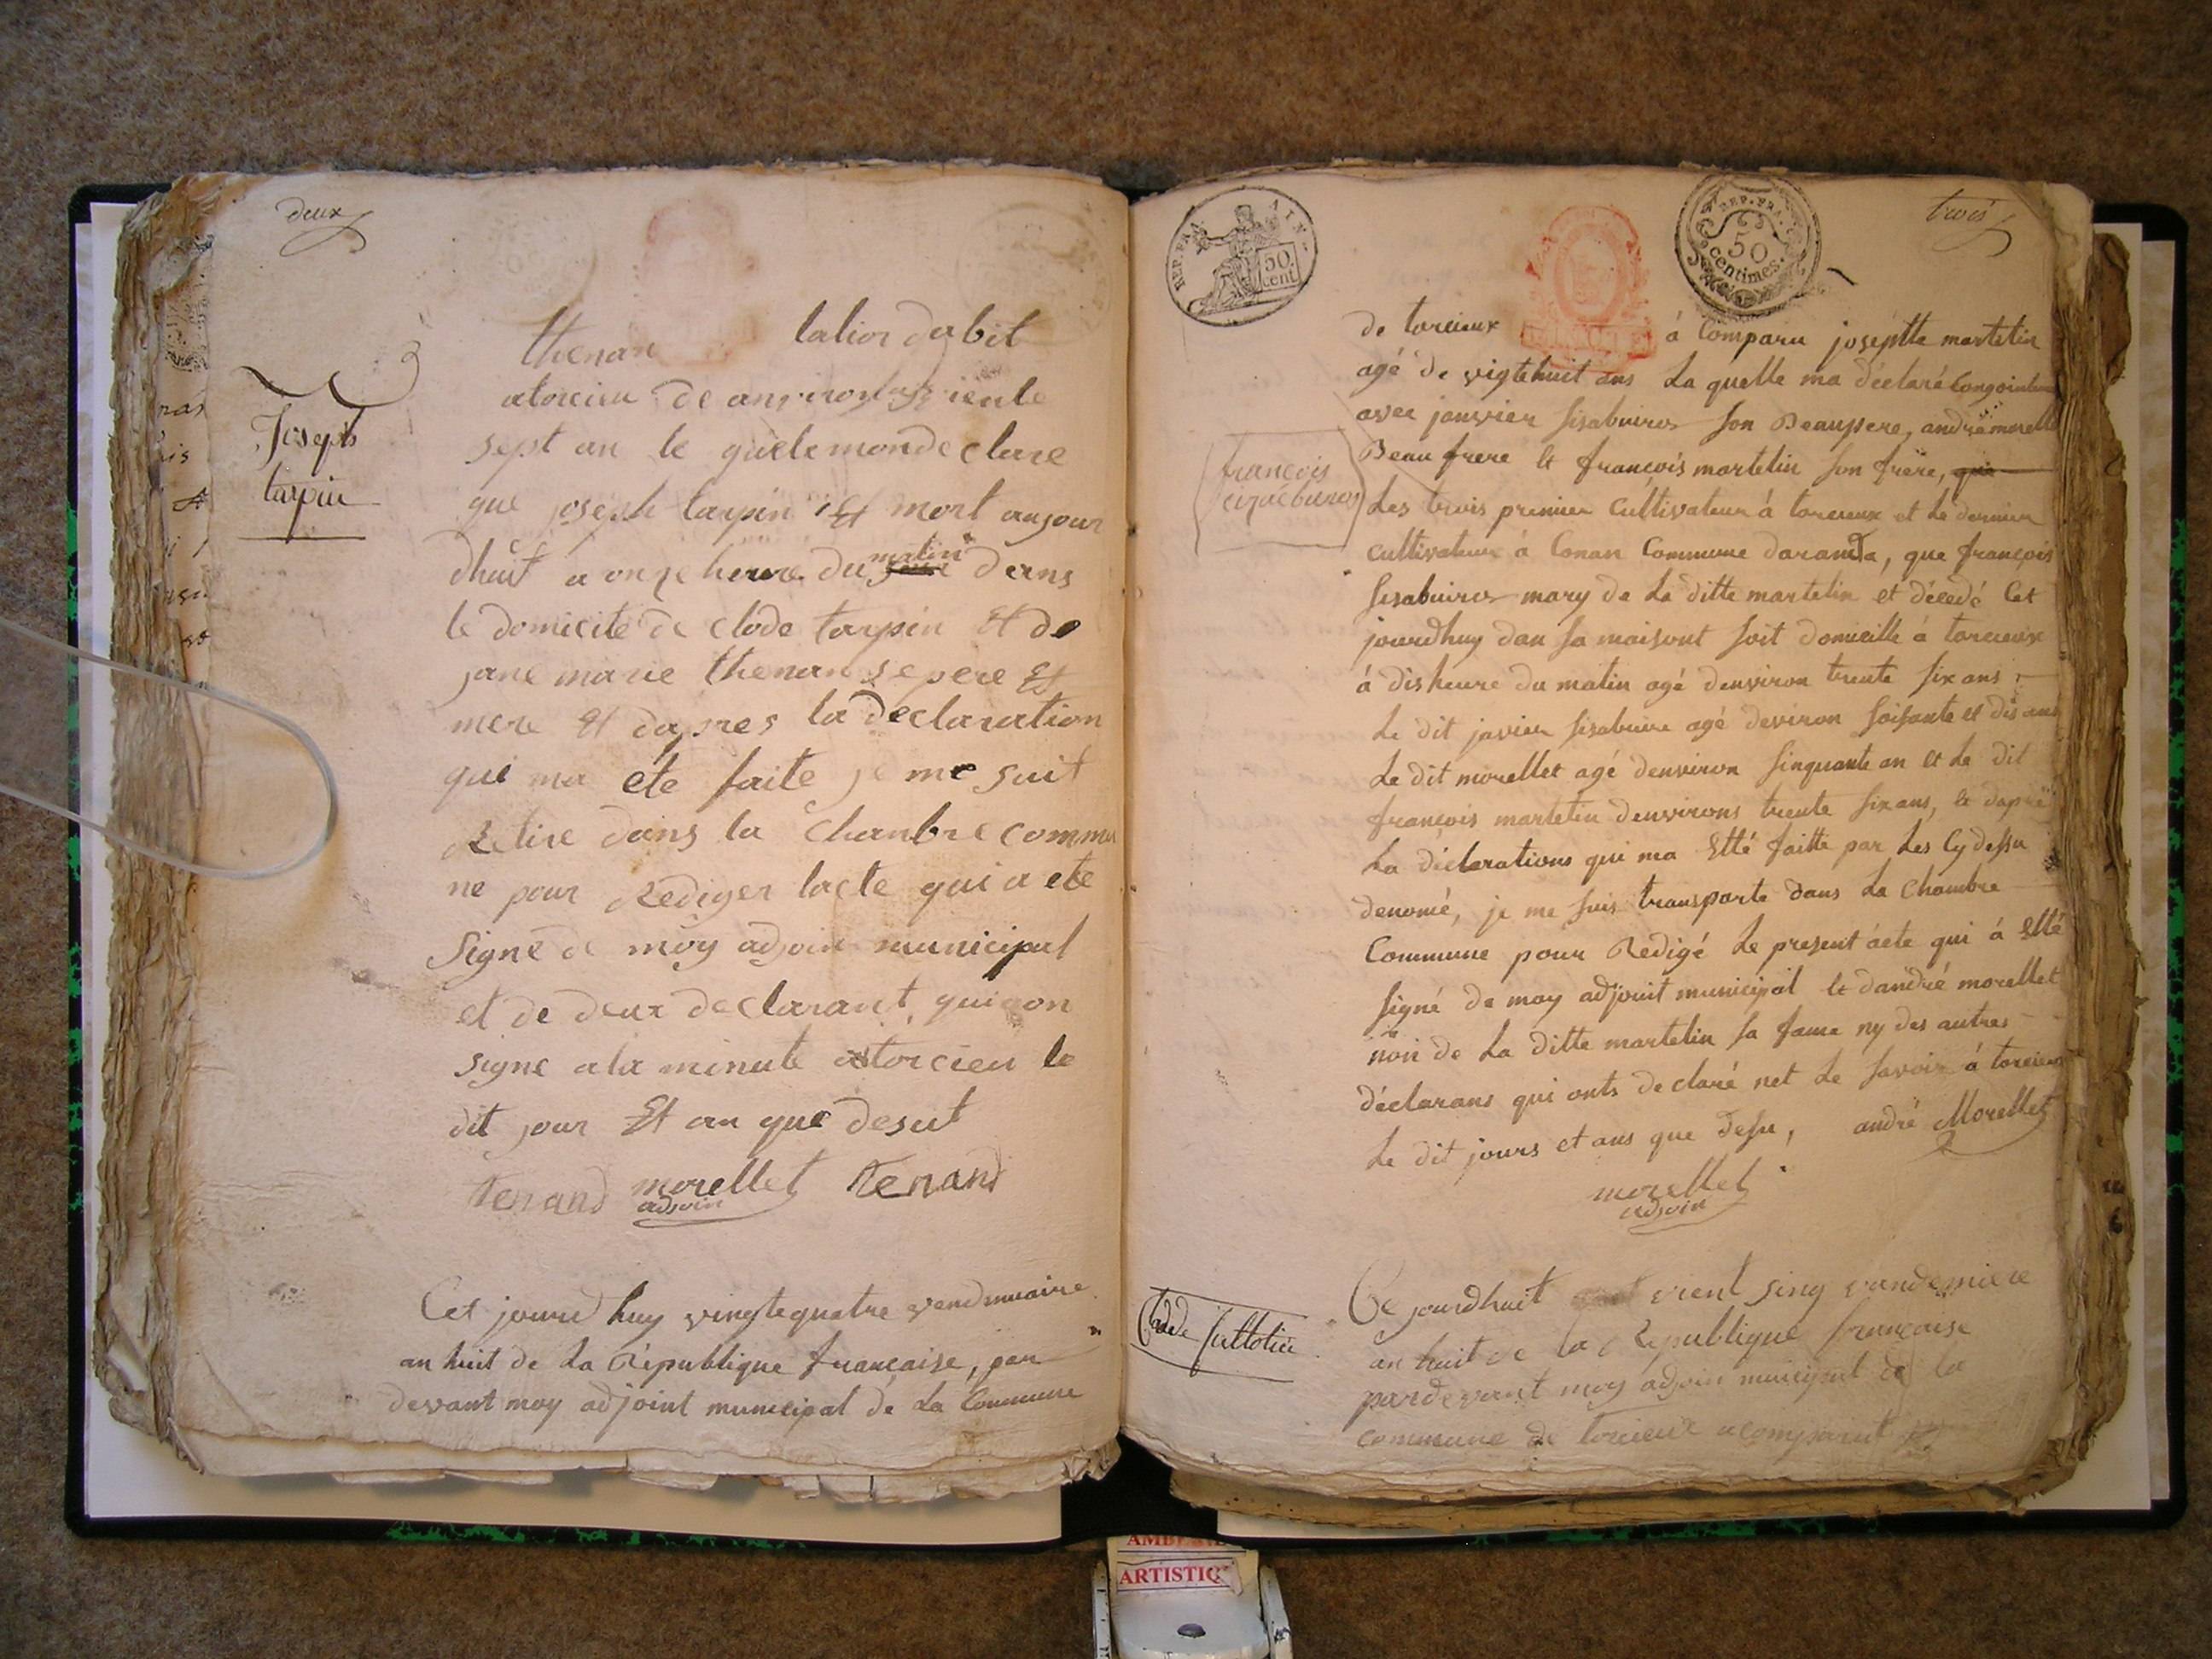 deux
Joseph
tarpin
thenan lation dabit
atorcieu de anviron
sept an le quele mon de clare
que joseph tarpin Et mort aujour
dhuit a onze heure du matin dans
le domicile de clode tarpin Et de
jane marie thenan se pere Et
mere Et dapres la declaration
qui ma éte faite je me suit
Retire dans la Chanbre commu
ne pour Rediger lacte qui a ete
Signe de moy adjoin municipal
et de deux declarant qui on
signe a la minute a torcieu le
dit jour Et an que desut
tenand morellet tenand
adjoin
Cet jourd huy vingtequatre vendmiaire
an huit de La République francaise, par
devant moy adjoint municipal de La Commune
REP. FRA. AIN.
50
cent.
REP. FRA.
50
centimes.
trois
de torcieux à Comparu joseptte martelin
agé de vigtehuit ans La quelle ma déclaré Congointeme
avec janvier sisabuiron son Beaupere, andré morellet
Beau frere et françois martelin son frère, qui
françois
Les trois premier Cultivateur à torcieux et Le dernier
cultivateur à Conan Commune daranda, que françois
sisabuiron mary de La ditte martelin et décedé Cet
jourdhuy dan sa maisont soit domicille à torcieux
à dis heure du matin agé denviron trente six ans
Le dit javier sisabuire agé deviron soisante et dis ans
Le dit morellet agé denviron sinquante an et Le dit
françois martelin denvirons trente six ans, et daprè
La déclarations qui ma Etté faitte par Les Cy dessu
denomé, je me suis transporte dans La Chambre
Commune pour Redigé Le present acte qui à Etté
signé de moy adjoint municipal et dandré morellet
non de La ditte martelin sa fame ny des autres
déclarans qui onts declaré net Le savoir à torcieux
Le dit jours et ans que dessu, andré Morellet
morellet
adjoin
Clade
Ce jourdhuit vient sing vandemiere
an huit de la Republique française
pardevant moy adjoin municipal de la
commune de torcieux a comparut
AMBE
ARTISTIQ